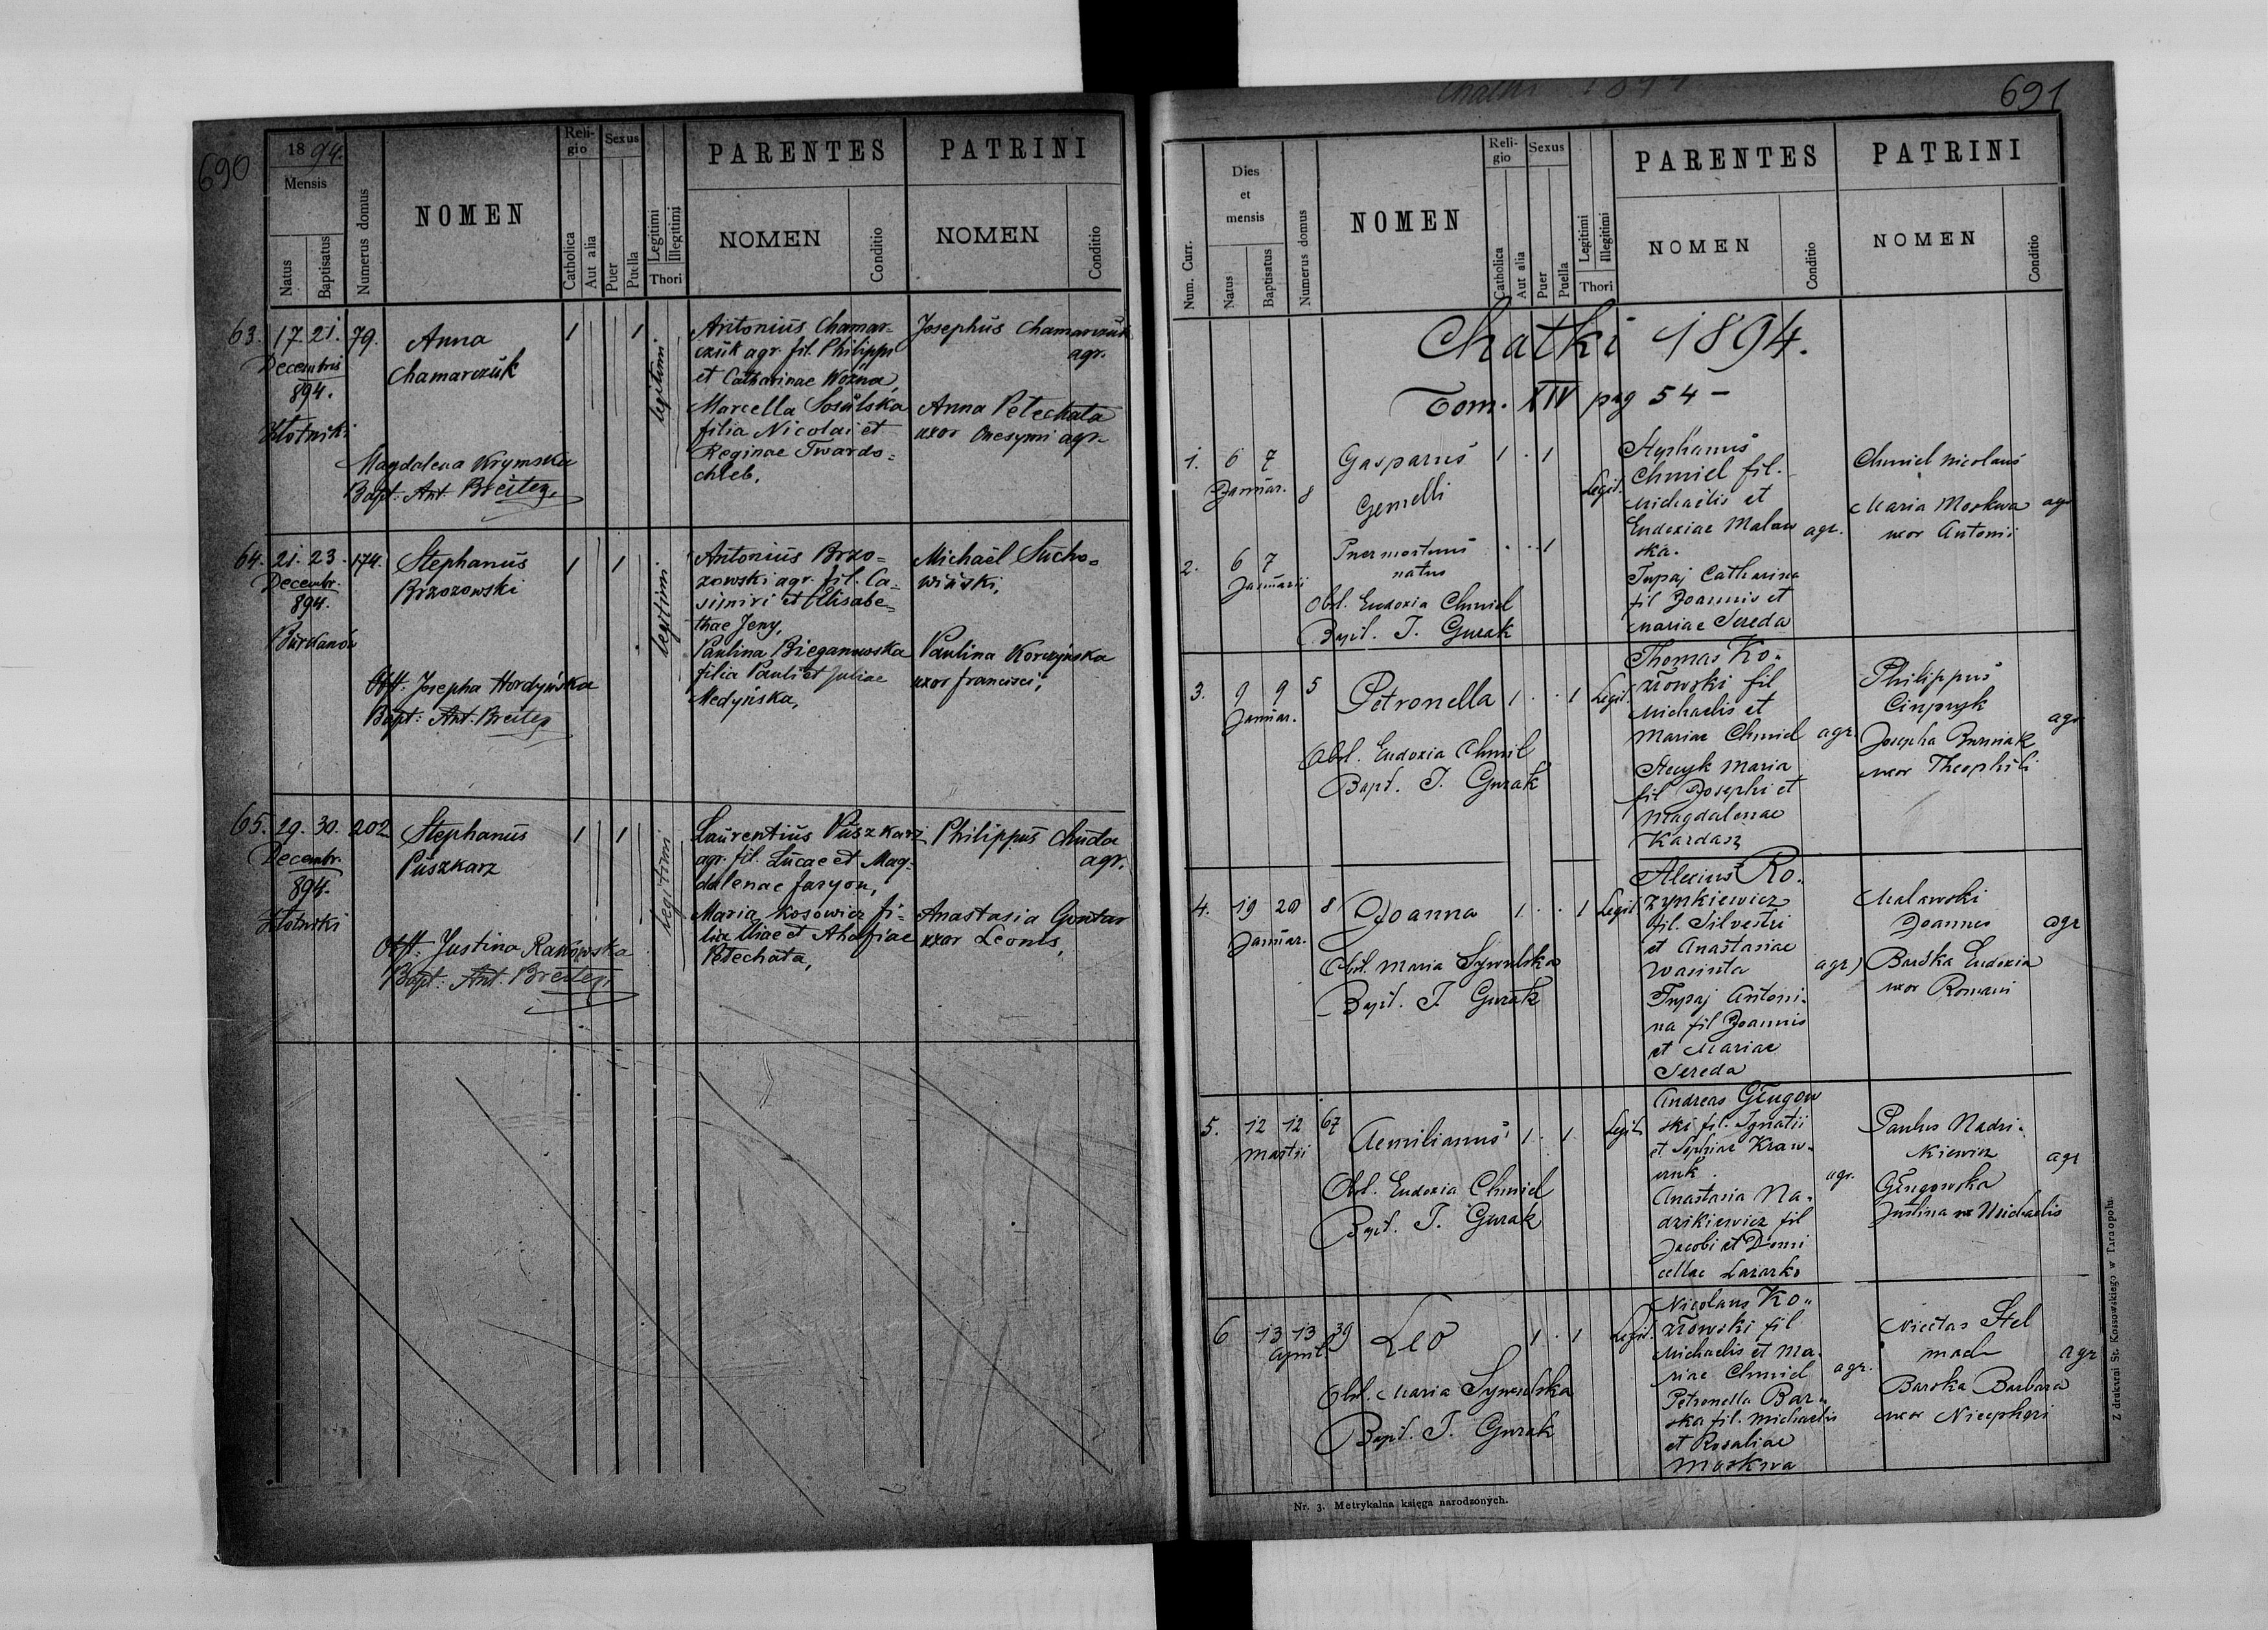 690
18 94.
Mensis
Natus
Baptisatus
Numerus domus
NOMEN
Reli-
gio
Catholica
Aut alia
Sexus
Puer
Puella
Legitimi
Illegitimi
Thori
PARENTES
NOMEN
Conditio
PATRINI
NOMEN
Conditio
63. 17. 21. 79.
Decembris
894.
Złotniki
Anna
Chamarczuk
1 1
legitimi
Magdalena Krymska
Bapt: Ant. Breitez
Antonius Chamar-
czuk agr. fil. Philippi
et Catharinae Woźna,
Marcella Sosulska
filia Nicolai et
Reginae Twardo-
chleb.
Josephus Chamarczuk
agr.
Anna Petechata
uxor Onesymi agr.
64. 21. 23. 174.
Decembr.
894.
Burkanów
Stephanus
Brzozowski
1 1
legitimi
Obst. Josepha Hordyńska
Bapt: Ant. Breitez
Antonius Brzo-
zowski agr. fil. Ca-
simiri et Elisabe-
thae Jeny,
Paulina Bieganowska
filia Pauli et Juliae
Medyńska,
Michaël Sucho-
wiński,
Paulina Korczyńska
uxor Francisci,
65. 29. 30. 202
Decembr.
894.
Złotniki
Stephanus
Puszkarz
1 1
legitimi
Obst: Justina Rakowska
Bapt: Ant. Breitez
Laurentius Puszkarz
agr. fil. Lucae et Mag-
dalenae Jaryon,
Maria Kosowicz fi-
lia Eliae et Ahafiae
Petechata,
Philippus Chuda
agr.
Anastasia Gontar
uxor Leonis,
691
Num. Curr.
Dies
et
mensis
Natus
Baptisatus
Numerus domus
NOMEN
Reli-
gio
Catholica
Aut alia
Sexus
Puer
Puella
Legitimi
Illegitimi
Thori
PARENTES
NOMEN
Conditio
PATRINI
NOMEN
Conditio
Chatki 1894.
Tom. XIV pag 54 -
1. 6 7
Januar. 8
Gasparus
Gemelli
1 . 1
Legit.
2. 6 7
Januarii
Puer mortuus
natus
. . 1
Obst. Eudoxia Chmiel
Bapt. J. Gurak
Stephanus
Chmiel fil.
Michaelis et
Eudoxiae Malaw
ska. agr.
Tupaj Catharina
fil Joannis et
Mariae Sereda
Chmiel Nicolaus
Maria Moskwa agr
uxor Antonii
3. 9 9 5
Januar.
Petronella
1 . . 1 Legit.
Obst. Eudoxia Chmil
Bapt. J. Gurak
Thomas Ko-
złowski fil
Michaelis et
Mariae Chmiel agr.
Stecyk Maria
fil Josephi et
Magdalenae
Kardasz
Philippus
Ciupryk
agr
Josepha Burniak
uxor Theophili
4. 19 20 8
Januar.
Joanna
1 . . 1 Legit
Obst. Maria Sywulska
Bapt. J. Gurak
Alexius Ro-
zynkiewicz
fil. Silvestri
et Anastasiae
Wacinta agr
Tupaj Antoni-
na fil Joannis
et Mariae
Sereda
Malawski
Joannes agr
Barska Eudoxia
uxor Romani
5. 12 12 67
Martii
Aemilianus
1 . 1 Legit.
Obst. Eudoxia Chmiel
Bapt. J. Gurak
Andreas Gługow
ski fil. Ignatii
et Sophiae Kraw-
czuk agr.
Anastasia Na-
dzikiewicz fil
Jacobi et Domi
cellae Lazarko
Paulus Nadzi-
kiewicz
agr
Gługowska
Justina ux Michaelis
6 13 13 39
April
Leo
1 . 1 Legit.
Obst. Maria Sywulska
Bapt. J. Gurak
Nicolaus Ko-
złowski fil
Michaelis et Ma-
riae Chmiel agr.
Petronella Bar-
ska fil. Michaelis
et Rosaliae
Moskwa
Nicetas Stel
mach agr
Barska Barbara
uxor Nicephori
Nr. 3. Metrykalna księga narodzonych.
Z drukarni St. Kossowskiego w Tarnopolu.